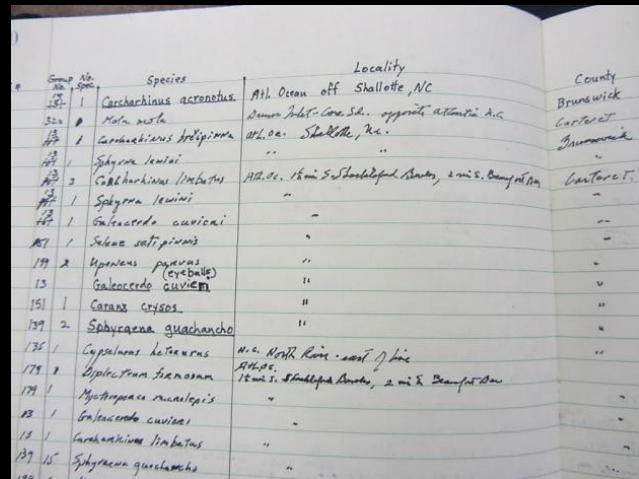 Group No. No. Spec. Species Locality County
1 Carcharhinus acronotus Atl. Ocean off Shallotte, NC Brunswick
Mola mola opposite Atlantic N.C. Carteret
Carcharhinus brevipinna Atl. Oc. Shallotte, N.C. Brunswick
1 Sphyrna lewini " " "
3 Carcharhinus limbatus Atl. Oc. Shackleford Banks, 2 mi S. Beaufort Bar Carteret
1 Sphyrna lewini " "
1 Galeocerdo cuvieri " "
151 1 Selene setipinnis " "
199 2 Upeneus parvus " "
(eyeballs)
13 Galeocerdo cuvieri " "
151 1 Caranx crysos " "
139 2 Sphyraena guachancho " "
135 1 Cypselurus heterurus N.C. North River - east of line "
Atl. Oc.
179 Diplectrum formosum S. Shackleford Banks, 2 mi S. Beaufort Bar
179 1 Mycteroperca microlepis " "
13 1 Galeocerdo cuvieri "
13 1 Carcharhinus limbatus " "
139 15 Sphyraena guachancho " "